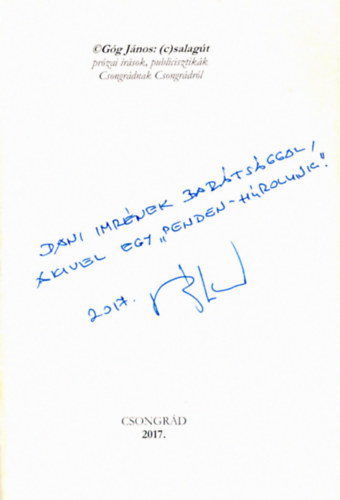 ©Góg János: (c)salagút
prózai írások, publicisztikák
Csongrádnak Csongrádról
DANI IMRÉNEK BARÁTSÁGGAL,
AKIVEL EGY „PENDEN-HÚROLUNK".
2017.
CSONGRÁD
2017.